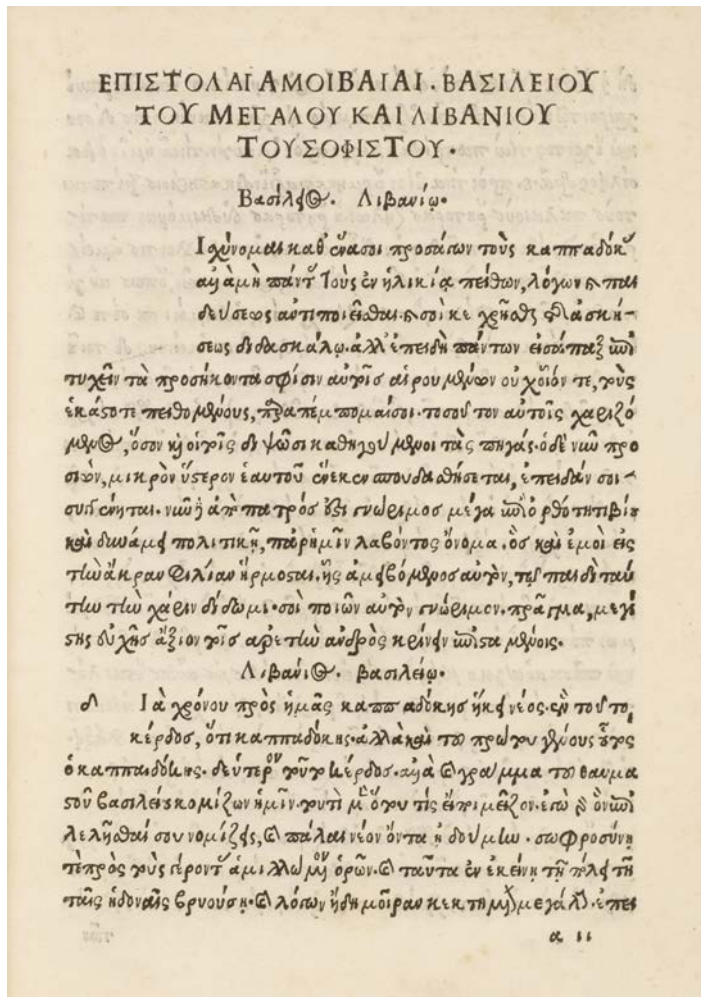 ΕΠΙΣΤΟΛΑΙ ΑΜΟΙΒΑΙΑΙ . ΒΑΣΙΛΕΙΟΥ
ΤΟΥ ΜΕΓΑΛΟΥ ΚΑΙ ΛΙΒΑΝΙΟΥ
ΤΟΥ ΣΟΦΙΣΤΟΥ .
Βασίλειος . Λιβανίῳ .
Ισχύνομαι καθ' ἕνα σοι προσάγων τοὺς καππαδόκας
ἀλλὰ μὴ πάντας τοὺς ἐν ἡλικίᾳ πείθων, λόγων καὶ παι
δεύσεως ἀντιποιεῖσθαι· καὶ σοὶ κεχρῆσθαι τῆς ἀσκή-
σεως διδασκάλῳ· ἀλλ' ἐπειδὴ πάντων εἰσάπαξ ἐπι
τυχεῖν τὰ προσήκοντα σφίσιν αὐτοῖς αἱρουμένων οὐχ οἷόν τε, τοὺς
ἑκάστοτε πειθομένους, παραπέμπομαί σοι· τοσοῦτον αὐτοῖς χαριζό
μενος, ὅσον καὶ οἱ τοῖς διψῶσι καθηγούμενοι τὰς πηγάς· ὁ δὲ νῦν προ
σιὼν, μικρὸν ὕστερον ἑαυτοῦ ἕνεκεν σπουδασθήσεται, ἐπειδάν σοι
συγγένηται· νῦν δὲ ἀπὸ πατρός ἐστι γνώριμος μέγα ἐπὶ ὀρθότητι βίου
καὶ δυνάμει πολιτικῇ, παρ' ἡμῖν λαβόντος ὄνομα· ὃς καὶ ἐμοὶ εἰς
τὴν ἄκραν φιλίαν ἥρμοσται· ἧς ἀμειβόμενος αὐτὸν, τῷ παιδὶ ταύ
την τὴν χάριν δίδωμι· σοὶ ποιῶν αὐτὸν γνώριμον· πρᾶγμα, μεγί
στης εὐχῆς ἄξιον τοῖς ἀρετὴν ἀνδρὸς κρίνειν ἐπισταμένοις .
Λιβάνιος . Βασιλείῳ .
δ Ιὰ χρόνου πρὸς ἡμᾶς καππαδόκης ἥκει νέος· ἓν τοῦτο,
κέρδος, ὅτι καππαδόκης· ἀλλὰ καὶ τοῦ πρώτου γένους οὗτος
ὁ καππαδόκης· δεύτερον τοῦτο κέρδος· ἀλλὰ καὶ γράμμα τοῦ θαυμα
στοῦ βασιλείου κομίζων ἡμῖν· τουτὶ μὲν οὖν τίς εἴποι μεῖζον· ἐγὼ γὰρ ὃν ἐπι
λελῆσθαί σου νομίζεις, καὶ πάλαι νέον ὄντα ᾐδούμην· σωφροσύνῃ
τὲ πρὸς τοὺς γέροντας ἁμιλλώμενον ὁρῶν· καὶ ταῦτα ἐν ἐκείνῃ τῇ πόλει τῇ
ταῖς ἡδοναῖς βρυούσῃ· καὶ λόγων ἤδη μοῖραν κεκτημένον μεγάλην· ἐπει
α ιι